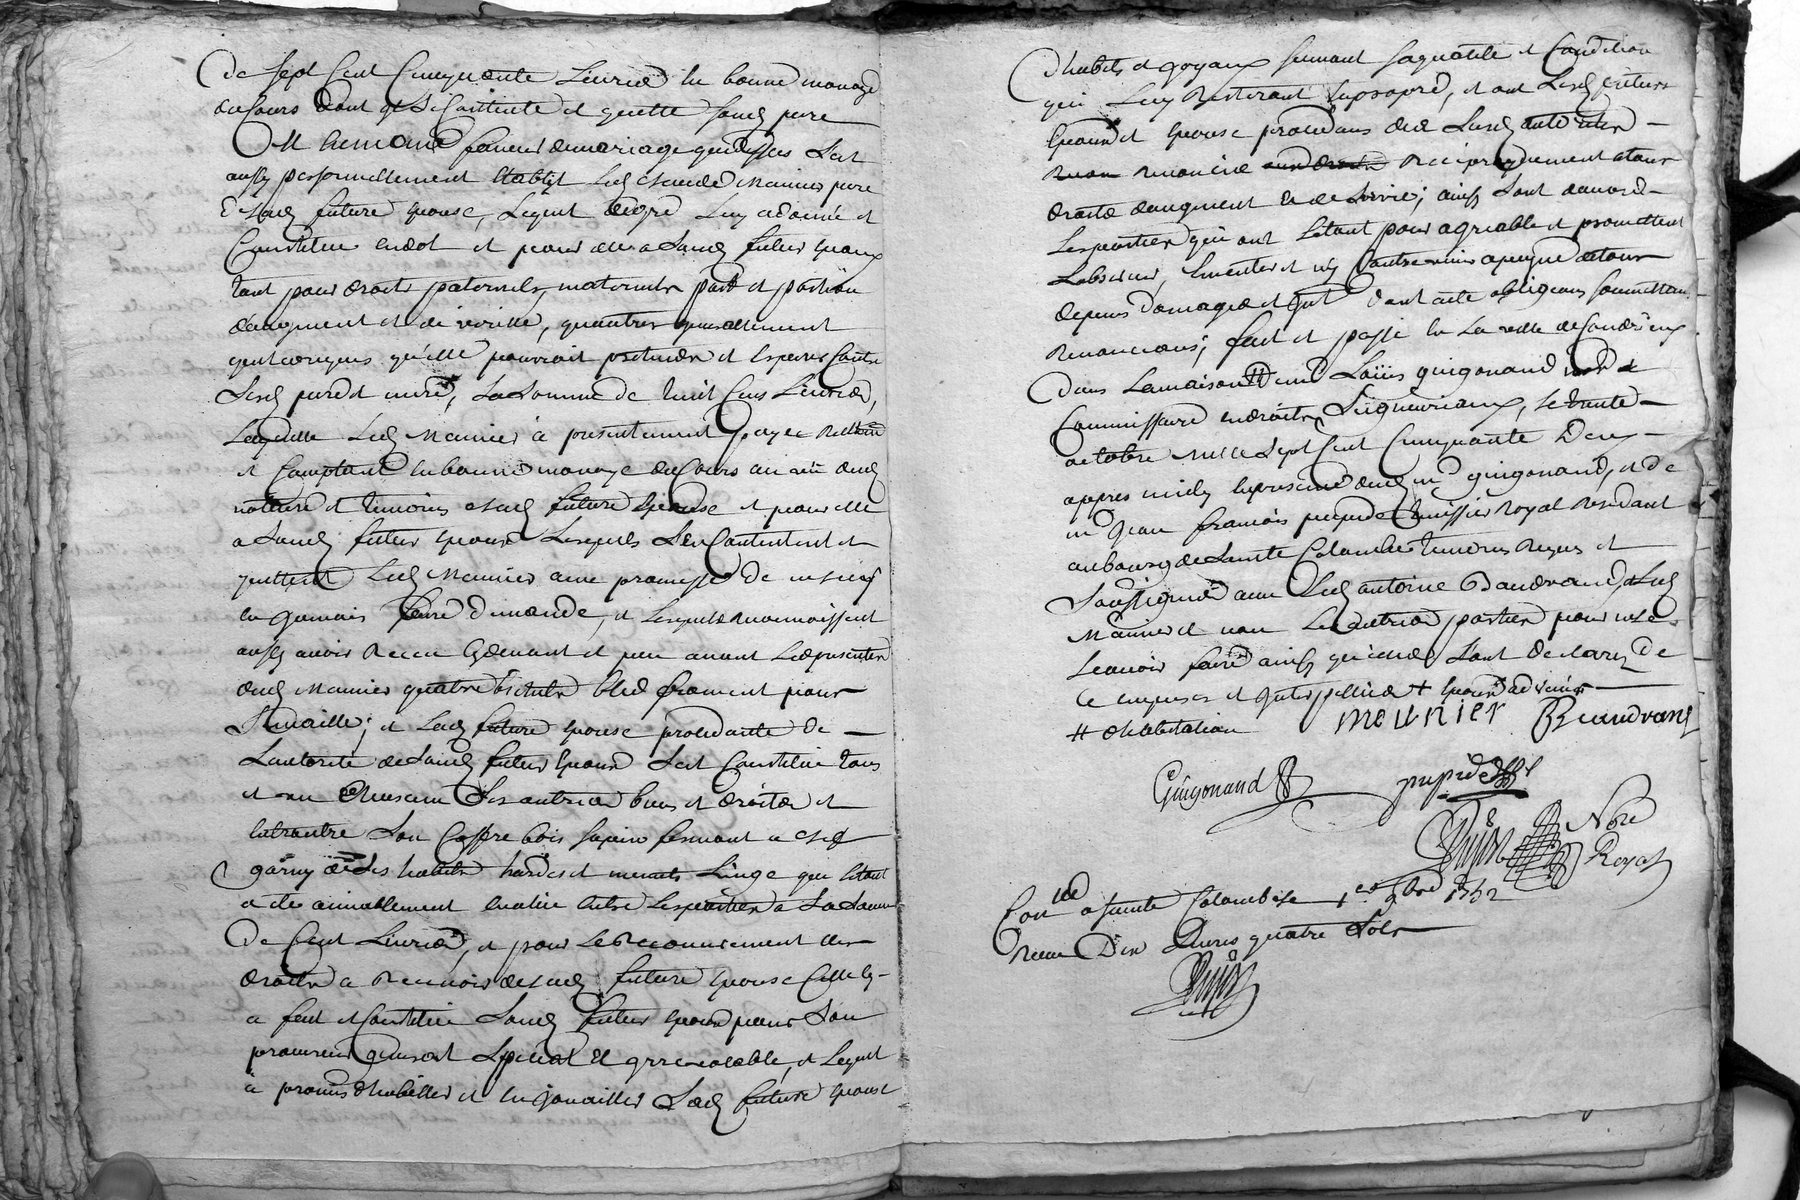 De sept Cent Cinquante Livres en bonne monoye
du Cours dont Il se Contente et quitte sond pere
Et en meme faveur de mariage que dessus s'est
aussy personnellement Etably led Claude Meunier pere
de lad future epouse, Lequel degré luy a donné et
Constitué en dot et pour elle a sond futur epoux
tant pour droits paternels, maternels part et portion
d'augment et de virille, qu'autres generallement
quelconques qu'elle pourroit pretendre et esperer Contre
sesd pere et mere, La somme de huit Cens Livres,
Laquelle led Meunier a presentement payée reellemt
et Comptant en bonne monoye du Cours au vû dud
notaire et temoins a lad future epouse et pour elle
a sond futur epoux Lesquels s'en Contentent et
quittent led Meunier avec promesse de ne luy
en jamais faire demande, et lesquels reconnoissent
aussy avoir Receu Cydevant et peu avant les presentes
dud Meunier quatre bichets bled froment pour
semaille; et lad future epouse procedante de
L'autorité de sond futur epoux s'est Constituée tous
et un Chacun ses autres biens et droits et
entr'autre son Coffre bois sapin fermant a Clef
garny de ses habits hardes et menus Linge qui Etant
a eté amiablement evalué entre les parties a la somme
De Cent Livres, et pour le Recouvrement des
droits a Recevoir de lad future epouse Celle cy
a fait et Constitué sond futur epoux pour son
procureur general special et irrevocable, et lequel
a promis d'habiller et enjouailler lad future epouse
d'habits et joyaux suivant sa qualité et Condition
qui luy Resteront en propre, et ont lesd futurs
epoux et epouse procedans de lad autorité
renoncé Reciproquement a tous
droits d'augment et de survie; ainsy sont d'accord
les parties qui ont le tout pour agreable et promettent
L'observer, l'executer et n'y Contrevenir a peyne de tous
depens domages et Int dont acte obligeans soumettans
Renonceans; fait et passé en La ville de Condrieux
dans La maison # de md Loüis guigonand
Commissaire en droits seigneuriaux, le trente
octobre mil sept Cent Cinquante Deux
appres midy en presence dud md guigonand, et de
md Jean françois pupide huissier Royal Residant
au bourg de Sainte Colombe temoins Requis et
Soussignés avec led antoine Baudrand, et led
Meunier et non les autres parties pour ne le
sçavoir faire ainsy qu'elles l'ont declaré de
Ce enquises et Interpellées + epoux advenir
# d'habitation meunier Baudrand
Guigonand pupide
Pujol Nore
Royal
Con lé a sainte Colombe le 1er 9bre 1752
Receu Dix Livres quatre sols
Pujol